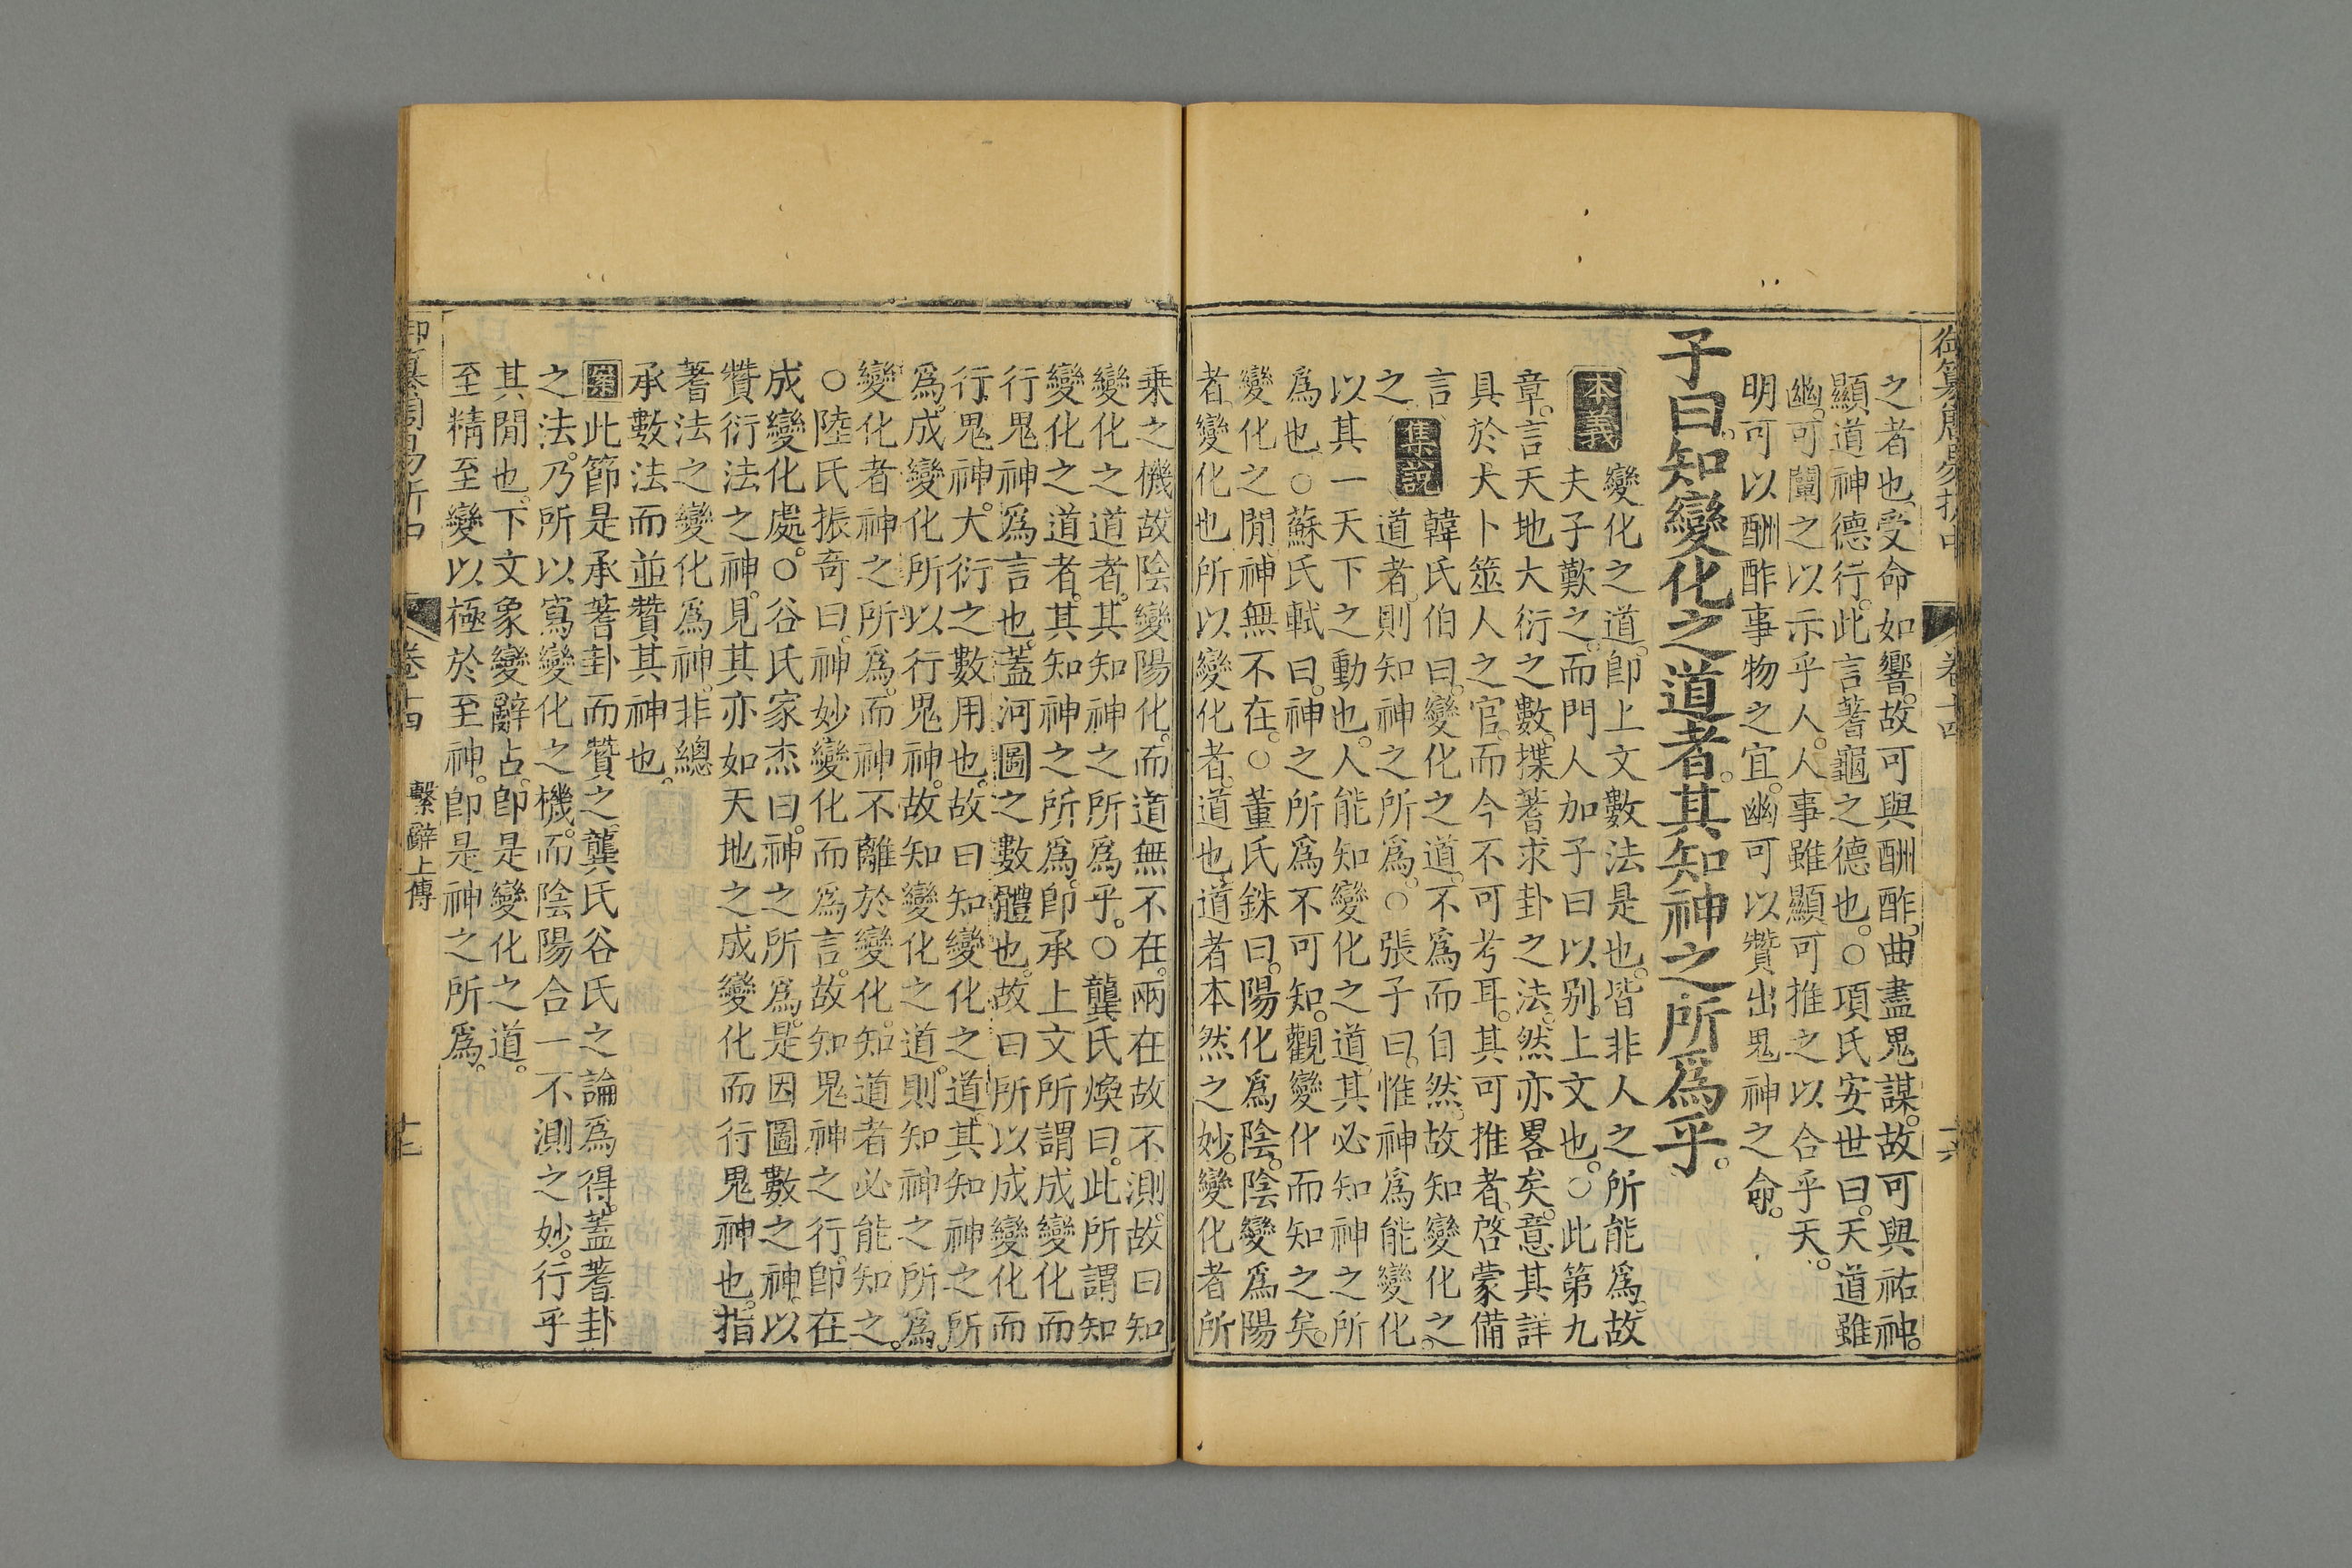 御纂周易折中
卷十四
之者也受命如響。故可與酬酢。曲盡鬼謀。故可與祐神。
顯道神德行。此言蓍龜之德也。○項氏安世曰。天道雖
幽。可闡之以示乎人。人事雖顯。可推之以合乎天。
明可以酬酢事物之宜。幽可以贊出鬼神之命。
子曰。知變化之道者。其知神之所爲乎。
本義
變化之道。卽上文數法是也。皆非人之所能爲。故
夫子歎之。而門人加子曰以别上文也。○此第九
章。言天地大衍之數。揲蓍求卦之法。然亦畧矣。意其詳
具於大卜筮人之官。而今不可考耳。其可推者。啓蒙備
言
集説
韓氏伯曰。變化之道。不爲而自然。故知變化之
之
道者。則知神之所爲。○張子曰。惟神爲能變化。
以其一天下之動也。人能知變化之道。其必知神之所
爲也。○蘇氏軾曰。神之所爲不可知。觀變化而知之矣。
變化之閒。神無不在。○董氏銖曰。陽化爲陰。陰變爲陽
者。變化也。所以變化者。道也。道者本然之妙。變化者所
乗之機。故陰變陽化。而道無不在。兩在故不測。故曰知
變化之道者。其知神之所爲乎。○龔氏煥曰。此所謂知
變化之道者。其知神之所爲。卽承上文所謂成變化而
行鬼神爲言也。蓋河圖之數體也。故曰所以成變化而
行鬼神。大衍之數用也。故曰知變化之道。其知神之所
爲。成變化所以行鬼神。故知變化之道。則知神之所爲。
變化者神之所爲。而神不離於變化。知道者必能知之。
○陸氏振奇曰。神妙變化而爲言。故知鬼神之行。卽在
成變化處。○谷氏家杰曰。神之所爲。是因圖數之神。以
贊衍法之神。見其亦如天地之成變化而行鬼神也。指
蓍法之變化爲神。非總
承數法而並贊其神也。
案此節是承蓍卦而贊之。龔氏谷氏之論爲得。蓋蓍卦
之法。乃所以寫變化之機。而陰陽合一不測之妙。行乎
其閒也。下文象變辭占。卽是變化之道。
至精至變以極於至神。卽是神之所爲。
卷十四
繫辭上傳